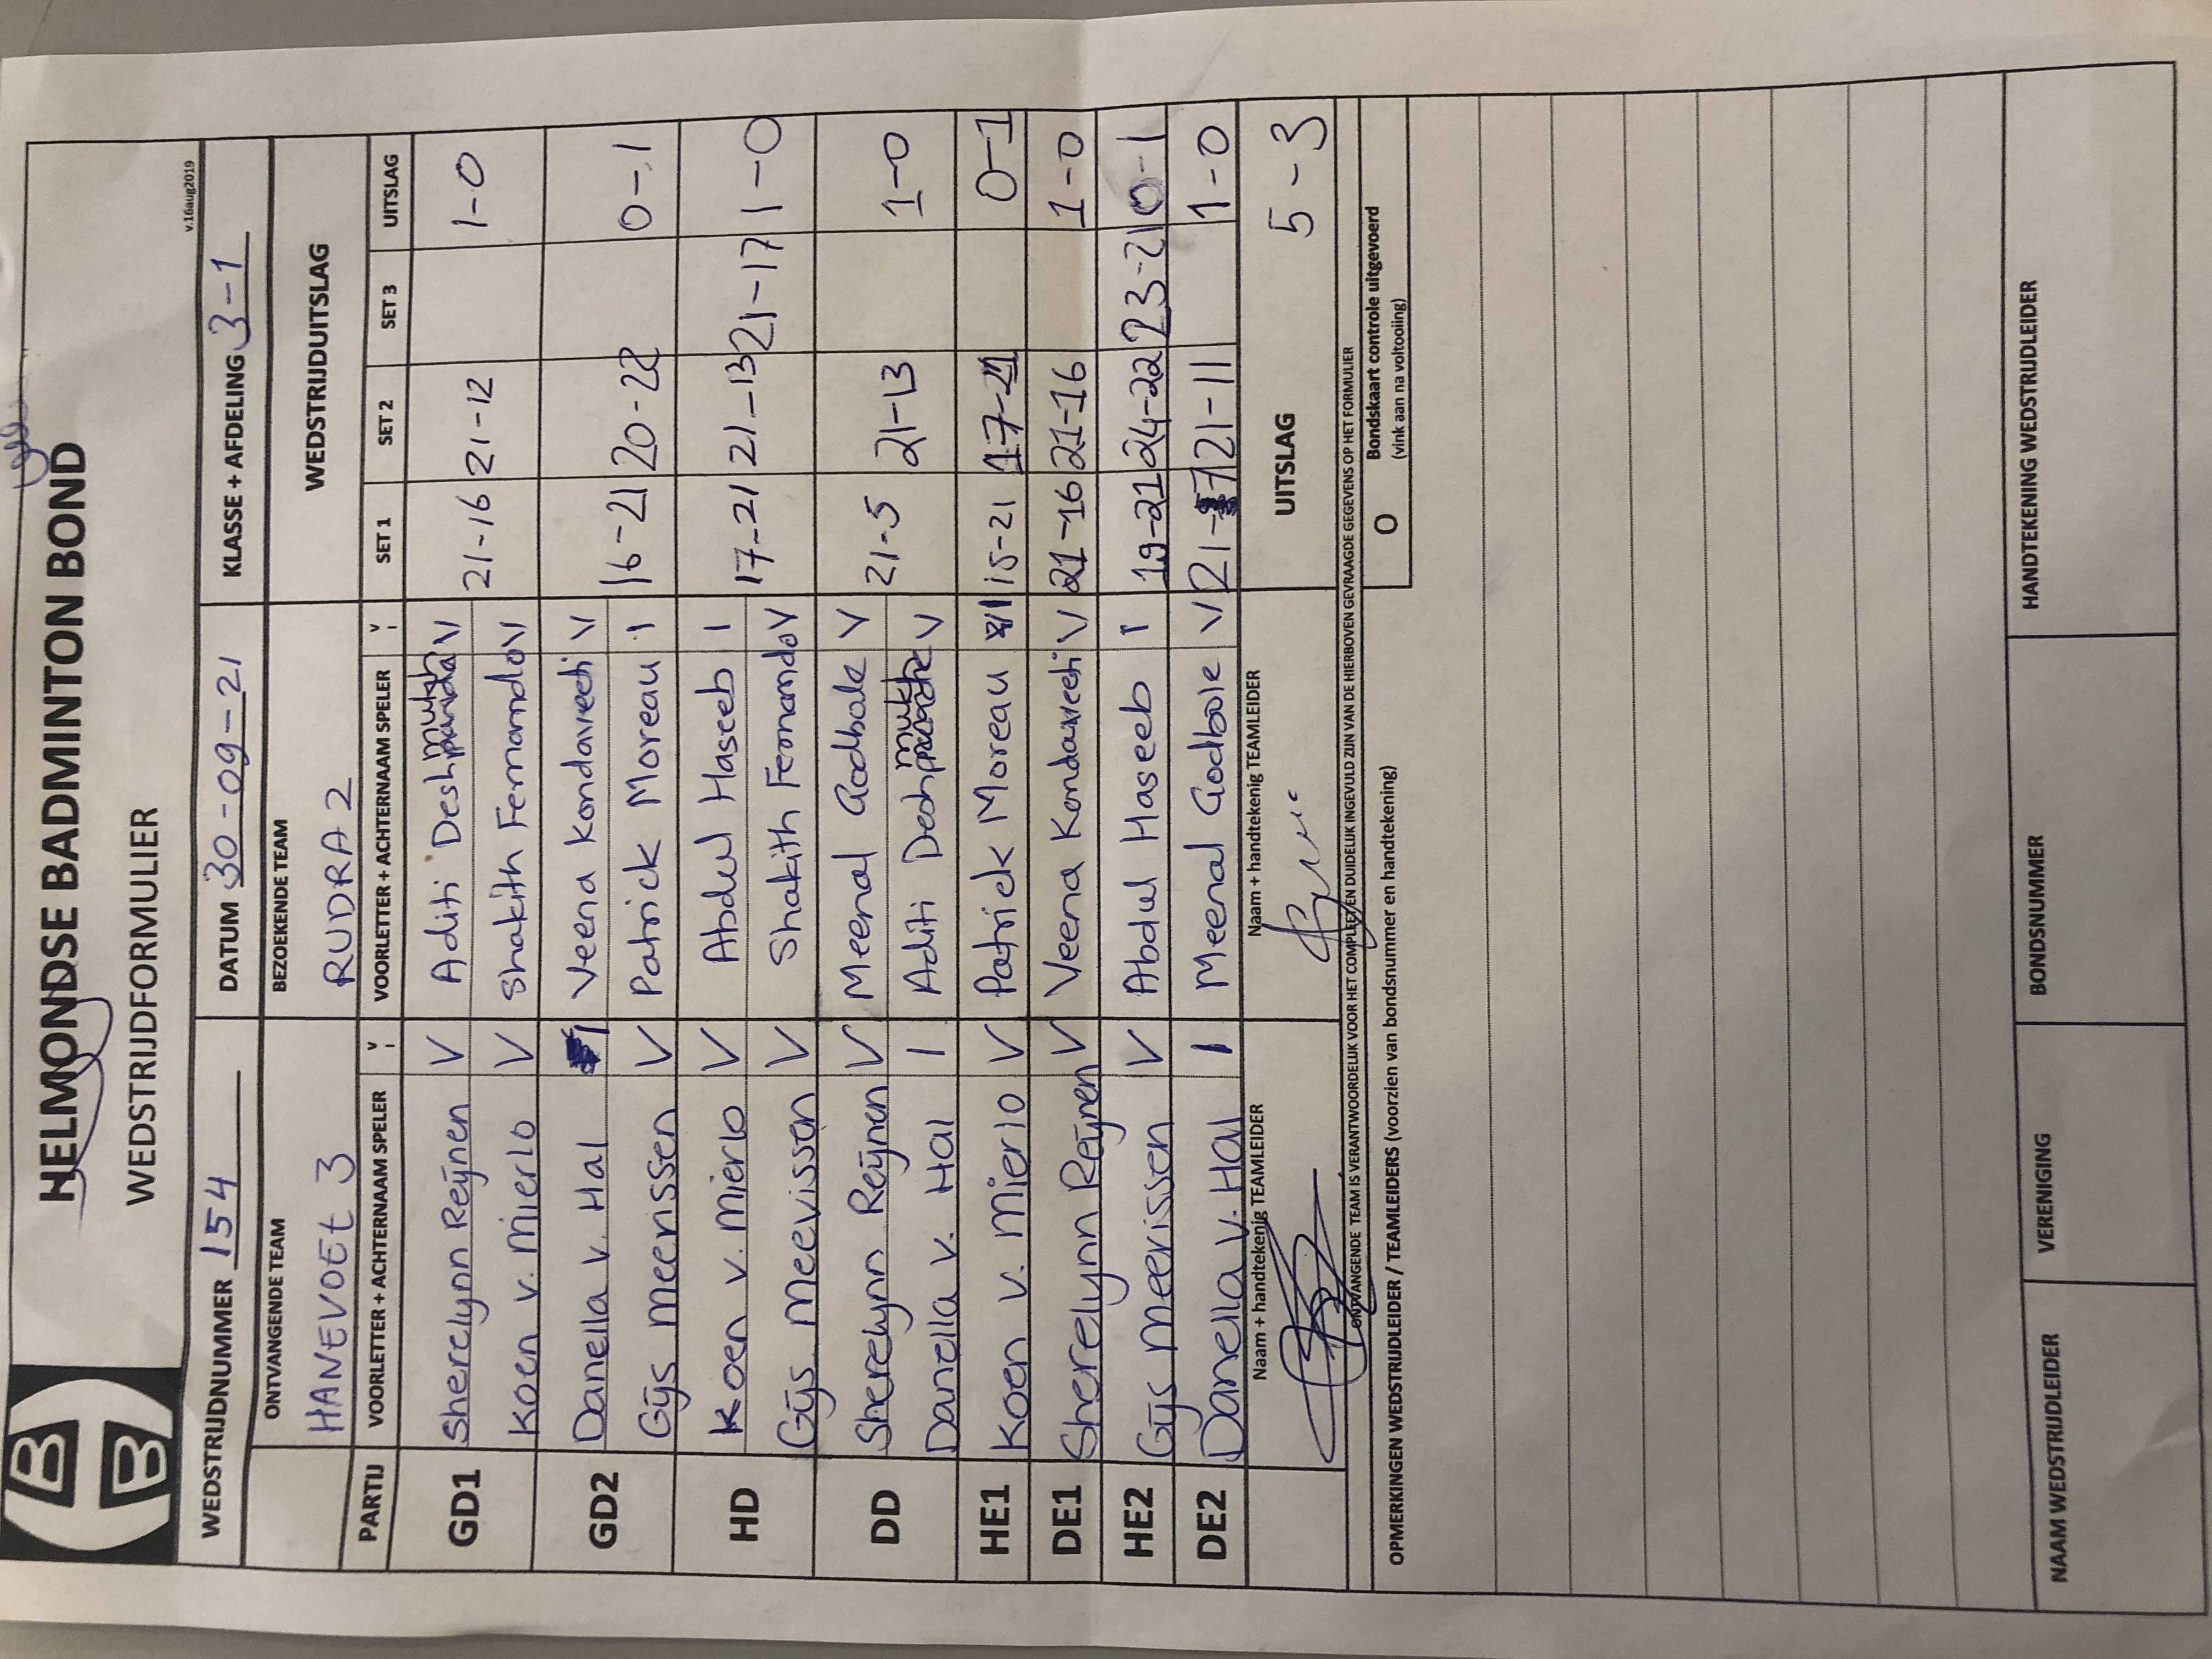 HELMONDSE BADMINTON BOND
WEDSTRIJDFORMULIER
v.16aug2019
WEDSTRIJDNUMMER 154 DATUM 30-09-21 KLASSE + AFDELING 3-1
ONTVANGENDE TEAM BEZOEKENDE TEAM WEDSTRIJDUITSLAG
HANEVOET 3 RUDRA 2
PARTIJ VOORLETTER + ACHTERNAAM SPELER V I VOORLETTER + ACHTERNAAM SPELER V I SET 1 SET 2 SET 3 UITSLAG
GD1 Sherelynn Reijnen V Aditi Deshmukh V 21-16 21-12 1-0
Koen v. Mierlo V Shakith Fernando V
GD2 Danella v. Hal I Veena Kondaveeti V 16-21 20-22 0-1
Gijs Meerissen V Patrick Moreau I
HD Koen v. Mierlo V Abdul Haseeb I 17-21 21-13 21-17 1-0
Gijs Meevissen V Shakith Fernando V
DD Sherelynn Reijnen V Meenal Godbole V 21-5 21-13 1-0
Danella v. Hal I Aditi Deshmukh V
HE1 Koen v. Mierlo V Patrick Moreau I 15-21 17-21 0-1
DE1 Sherelynn Reijnen V Veena Kondaveeti V 21-16 21-16 1-0
HE2 Gijs Meerissen V Abdul Haseeb I 19-21 24-22 23-21 0-1
DE2 Danella v. Hal I Meenal Godbole V 21-7 21-11 1-0
Naam + handtekenig TEAMLEIDER Naam + handtekenig TEAMLEIDER UITSLAG 5-3
ONTVANGENDE TEAM IS VERANTWOORDELIJK VOOR HET COMPLEET EN DUIDELIJK INGEVULD ZIJN VAN DE HIERBOVEN GEVRAAGDE GEGEVENS OP HET FORMULIER
O Bondskaart controle uitgevoerd
(vink aan na voltooiing)
OPMERKINGEN WEDSTRIJDLEIDER / TEAMLEIDERS (voorzien van bondsnummer en handtekening)
NAAM WEDSTRIJDLEIDER VERENIGING BONDSNUMMER HANDTEKENING WEDSTRIJDLEIDER